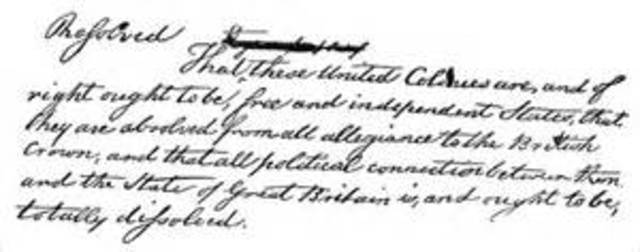 Resolved
That these United Colonies are, and of
right ought to be, free and independent States, that
they are absolved from all allegiance to the British
Crown, and that all political connection between them
and the State of Great Britain is, and ought to be,
totally dissolved.